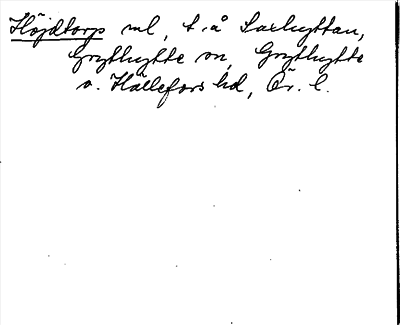 Höjdtorp ml, t. å Saxhyttan,
Grythytte sn, Grythytte
o. Hällefors hd, Ör. l.